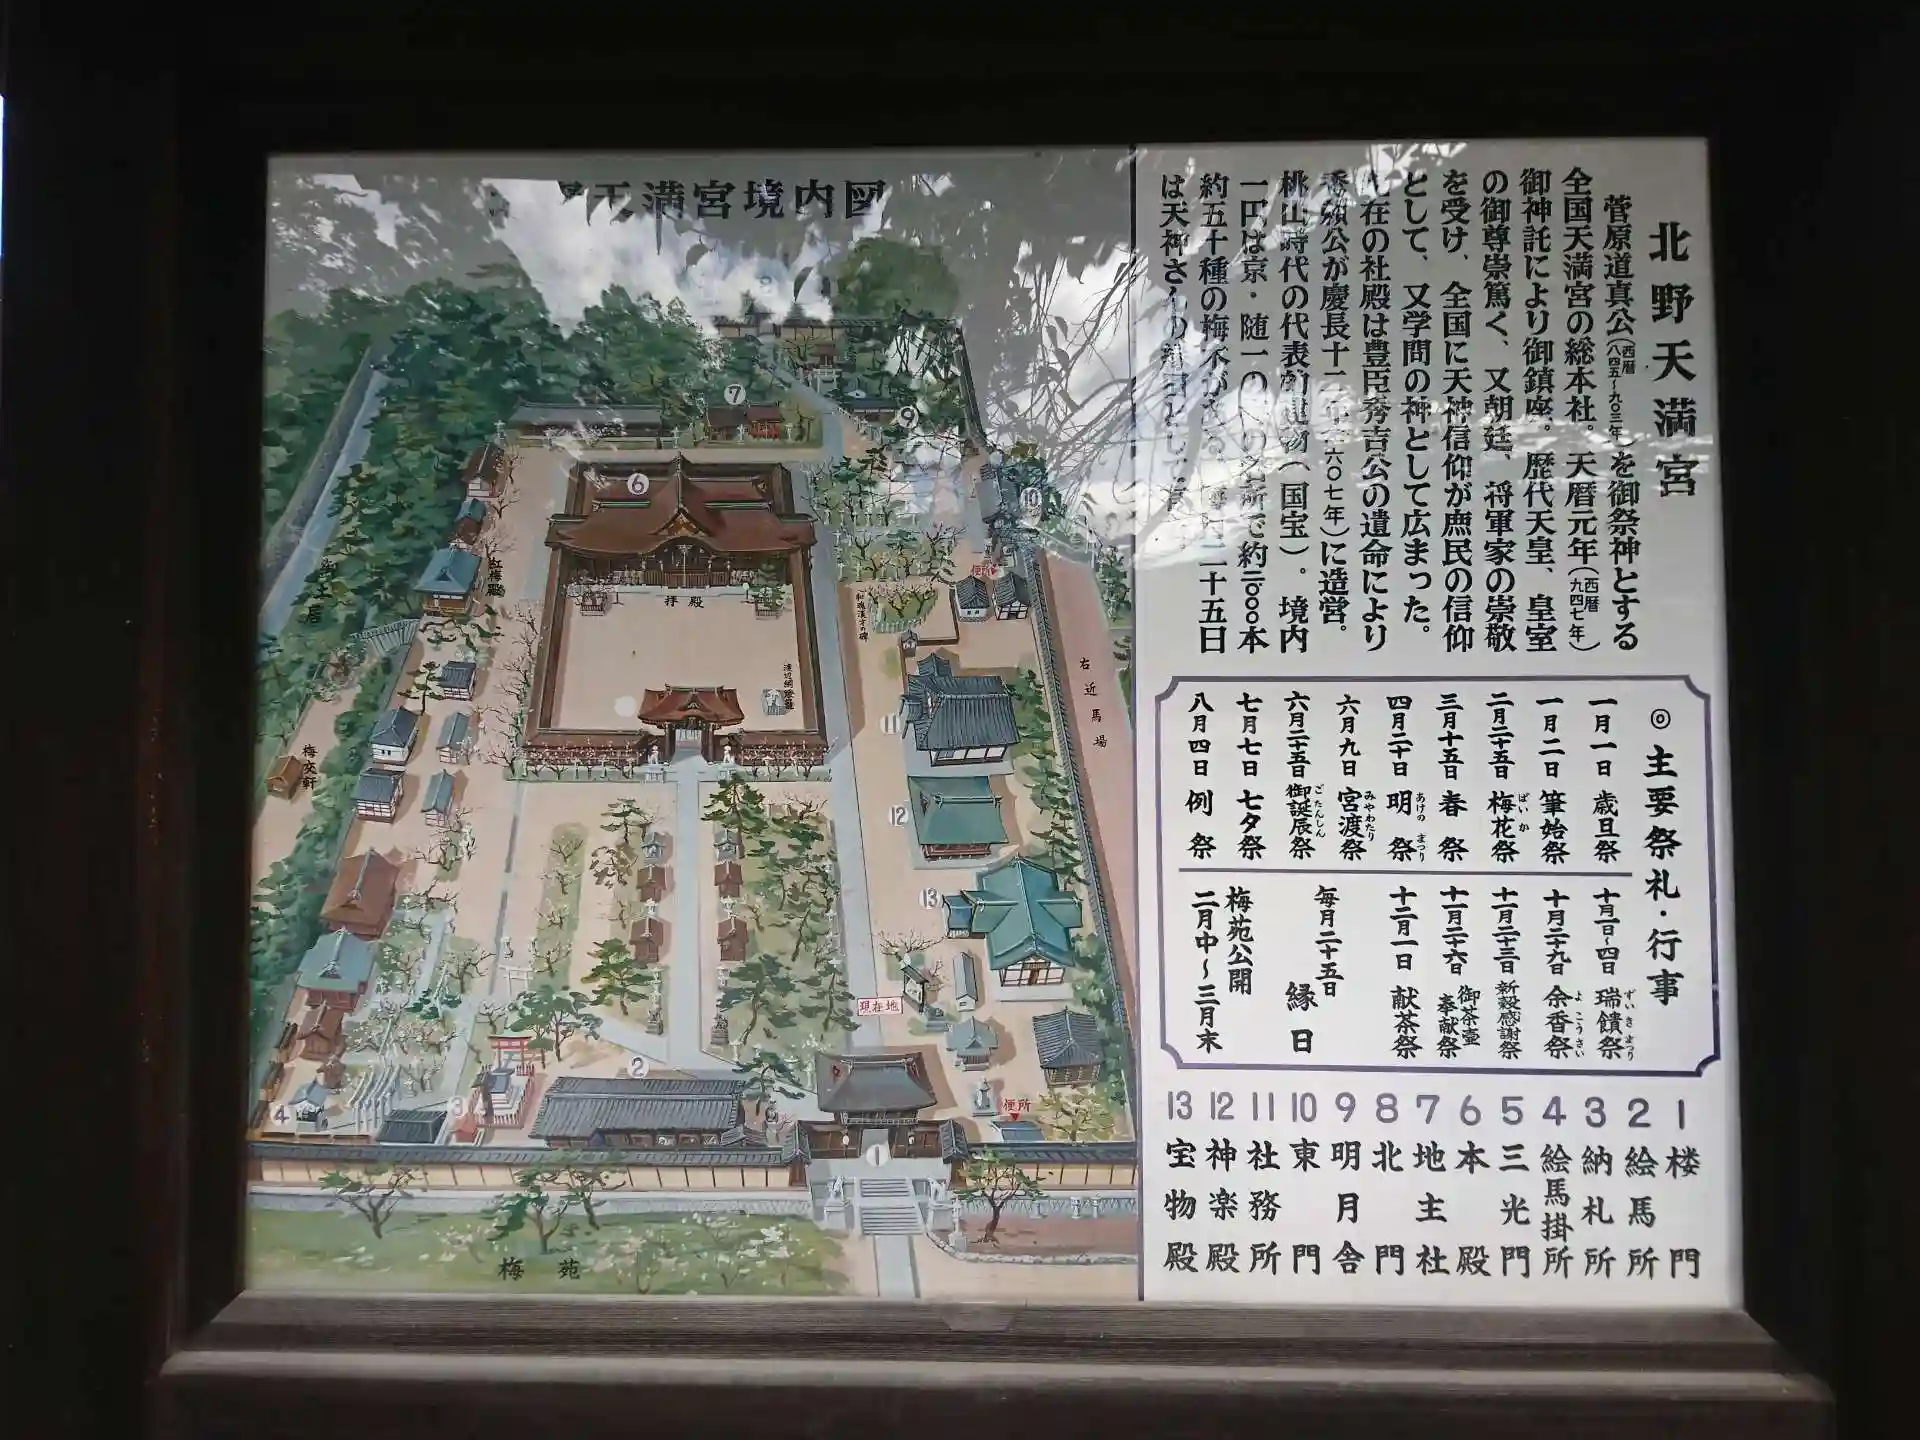 天満宮境内図
北野天満宮
菅原道真公(西暦八四五〜九〇三年)を御祭神とする
全国天満宮の総本社。天暦元年(西暦九四七年)
御神託により御鎮座。歴代天皇、皇室
の御尊崇篤く、又朝廷、将軍家の崇敬
を受け、全国に天神信仰が庶民の信仰
として、又学問の神として広まった。
在の社殿は豊臣秀吉公の遺命により
秀頼公が慶長十二年 六〇七年)に造営。
桃山時代の代表的建物(国宝)。境内
一円は京・随一の の名所で約二、〇〇〇本
約五十種の梅木が 二十五日
は天神さんの 日として
◎主要祭礼・行事
一月一日 歳旦祭
一月二日 筆始祭
二月二十五日 梅花祭 ばいか
三月十五日 春祭
四月二十日 明祭 あけのまつり
六月九日 宮渡祭 みやわたり
六月二十五日 御誕辰祭 ごたんしん
七月七日 七夕祭
八月四日 例祭
十月一日〜四日 瑞饋祭 ずいきまつり
十月二十九日 余香祭 よこうさい
十一月二十三日 新穀感謝祭
十一月二十六日 御茶壷奉献祭
十二月一日 献茶祭
毎月二十五日 縁日
梅苑公開
二月中〜三月末
1 楼門
2 絵馬所
3 納札所
4 絵馬掛所
5 三光門
6 本殿
7 地主社
8 北門
9 明月舎
10 東門
11 社務所
12 神楽殿
13 宝物殿
7
9
6
10
紅梅殿
拝殿
便所
和魂漢才の碑
右近馬場
梅交軒
11
12
13
現在地
2
3
4
便所
1
梅苑